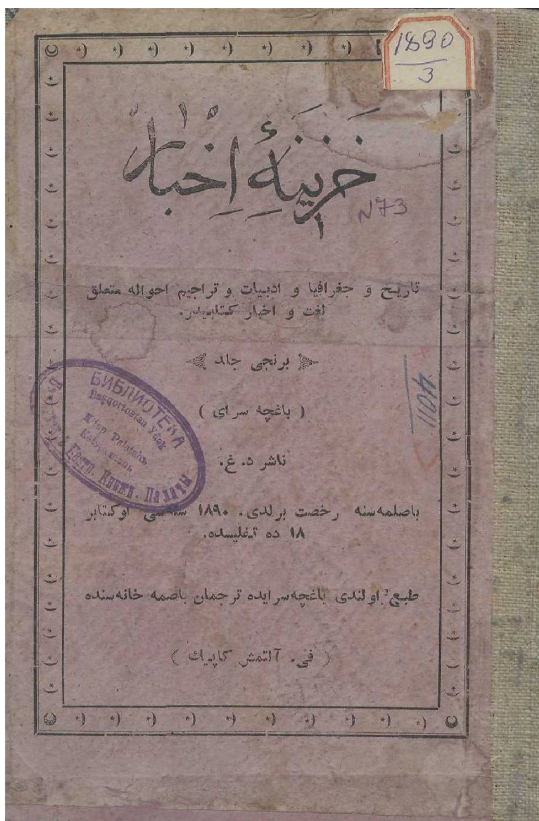 1890
3
خزینۀ اخبار
N73
تاریخ و جغرافیا و ادبیات و تراجیم احواله متعلق
لغت و اخبار کتابیدر.
برنجی جلد
( باغچه سرای )
ناشر د. غ.
باصلمه‌سنه رخصت برلدی. ١٨٩٠ اوکتابر
١٨ ده تفلیسده.
طبع اولندی باغچه‌سرایده ترجمان باصمه خانه‌سنده
( فی. آلتمش کاپیك )
БИБЛИОТЕКА
Книжн. Палаты
4011